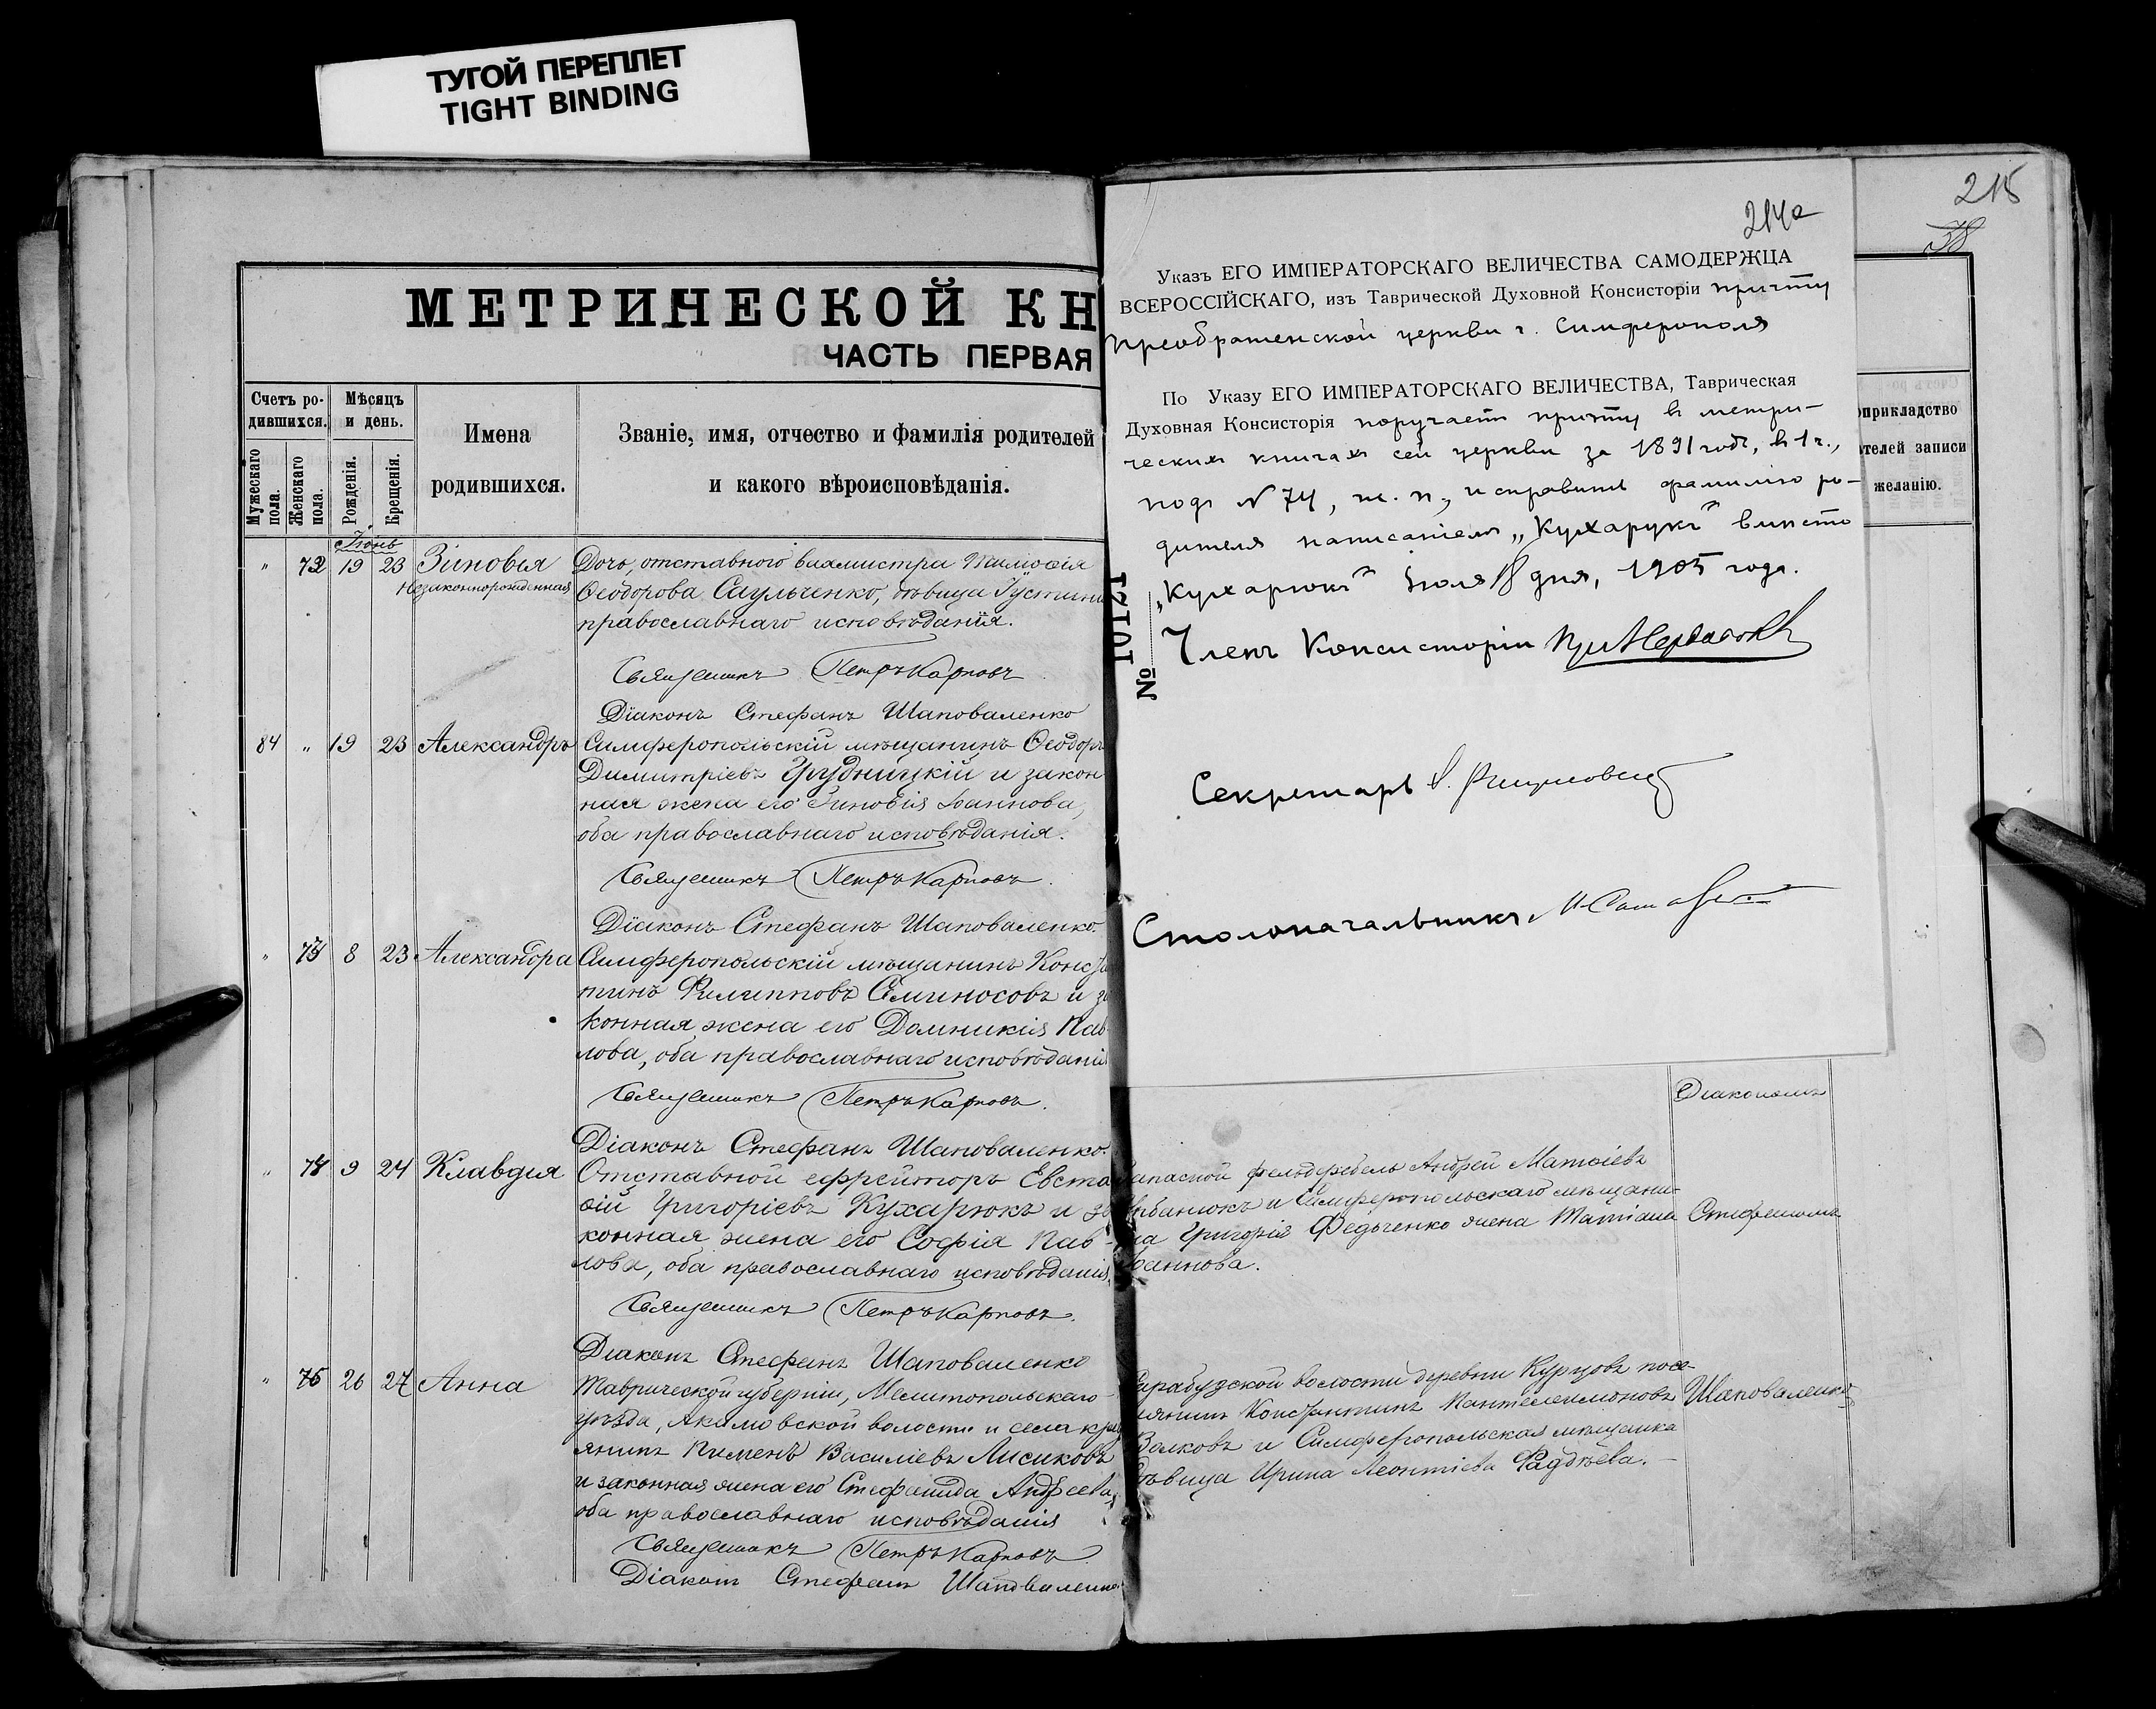 ТУГОЙ ПЕРЕПЛЕТ
TIGHT BINDING
МЕТРИЧЕСКОЙ КН
ЧАСТЬ ПЕРВАЯ
Счетъ ро-
дившихся.
Мѣсяцъ
и день.
Мужескаго
пола.
Женскаго
пола.
Рожденія.
Крещенія.
Имена
родившихся.
Званіе, имя, отчество и фамилія родителей
и какого вѣроисповѣданія.
Іюнь
" 72 19 23 Зиновія Дочь, отставного вахмистра Тимоѳія
Незаконнорожденная Ѳеодорова Саульченко, дѣвица Іустина
православнаго исповѣданія.
Священникъ Петръ Карповъ
Діаконъ Стефанъ Шаповаленко
84 " 19 23 Александръ Симферопольскій мѣщанинъ Ѳеодоръ
Димитріевъ Грудницкій и закон
ная жена его Зиновія Іоаннова,
оба православнаго исповѣданія.
Священникъ Петръ Карповъ.
Діаконъ Стефанъ Шаповаленко.
" 73 8 23 Александра Симферопольскій мѣщанинъ Конста
тинъ Филипповъ Семиносовъ и за
конная жена его Домникія Пав
лова, оба православнаго исповѣданія
Священникъ Петръ Карповъ.
Діаконъ Стефанъ Шаповаленко.
" 74 9 24 Клавдія Отставной ефрейторъ Евста
ѳій Григоріевъ Кухарюкъ и за
конная жена его Софія Пав-
лова, оба православнаго исповѣданія.
Священникъ Петръ Карповъ.
Діаконъ Стефанъ Шаповаленко
" 75 26 27 Анна Таврической губерніи, Мелитопольскаго
уѣзда, Акимовской волости и села кре
янинъ Пименъ Василіевъ Лисиковъ
и законная жена его Стефанида Андреева,
оба православнаго исповѣданія
Священникъ Петръ Карповъ
Діаконъ Стефанъ Шаповаленко
215
38
214а
Указъ ЕГО ИМПЕРАТОРСКАГО ВЕЛИЧЕСТВА САМОДЕРЖЦА
ВСЕРОССІЙСКАГО, изъ Таврической Духовной Консисторіи причту
Преображенской церкви г. Симферополя
По Указу ЕГО ИМПЕРАТОРСКАГО ВЕЛИЧЕСТВА, Таврическая
Духовная Консисторія поручаетъ причту въ метри-
ческихъ книгахъ сей церкви за 1891 годъ, въ 1 ч.,
подъ № 74, ж. п., исправить фамилію ро-
дителя написаніемъ „Кухарукъ" вмѣсто
„Кухарюкъ" Іюля 18 дня, 1905 года.
№ 12101
Членъ Консисторіи
Секретарь
Столоначальникъ
оприкладство
ителей записи
желанію.
Діакономъ
Запасной фельдфебель Андрей Матѳіевъ
Урбанюкъ и Симферопольскаго мѣщани-
на Григорія Федьченко жена Татіана Стефаномъ
Іоаннова.
Сарабузской волости деревни Курцовъ посе-
лянинъ Константинъ Пантелеимоновъ Шаповаленко
Волковъ и Симферопольская мѣщанка
дѣвица Ирина Леонтіева Фаддѣева.